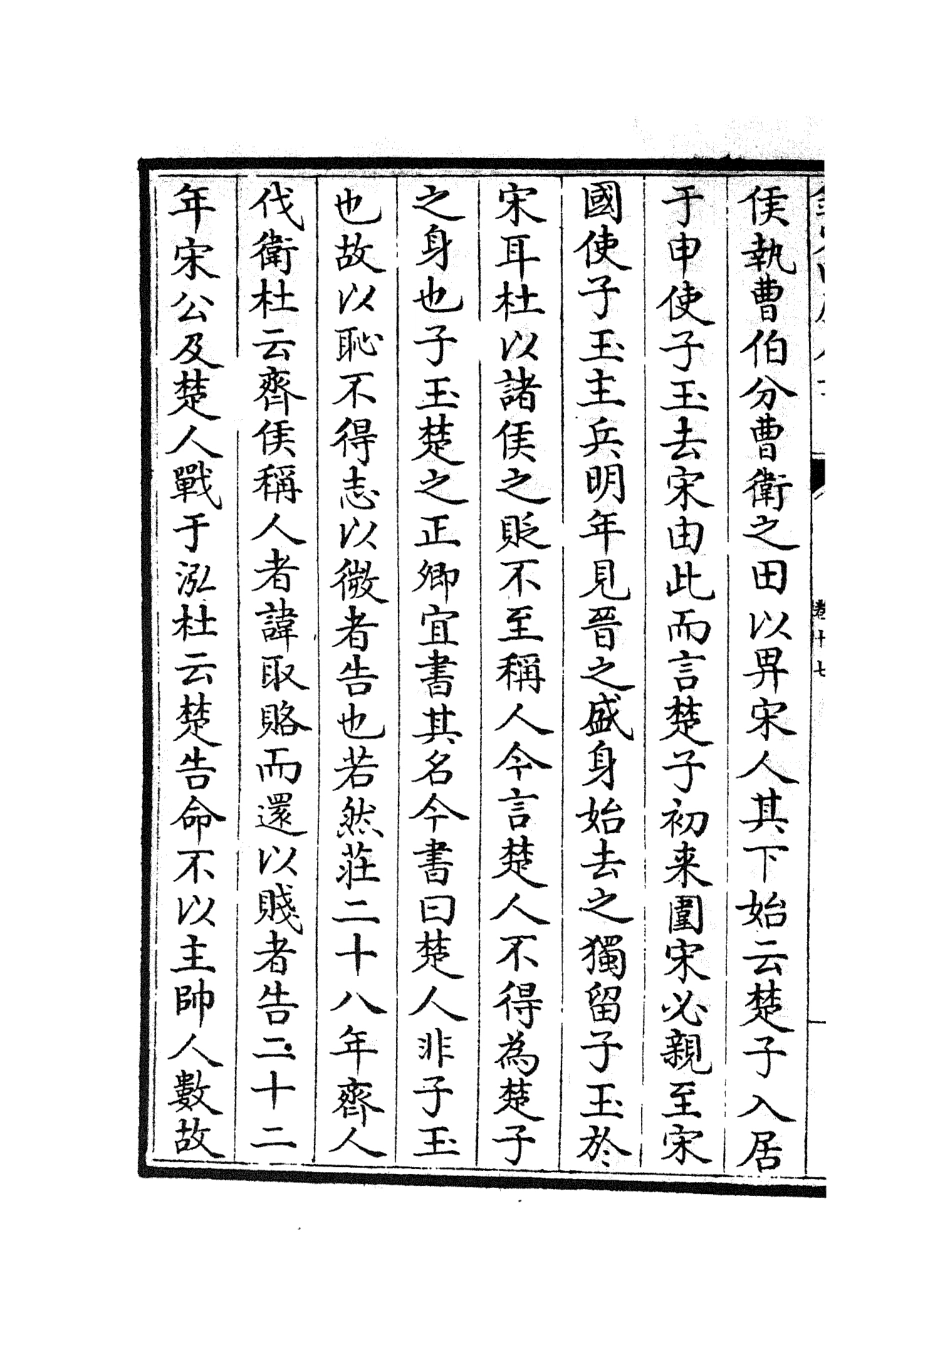 侯執曹伯分曹衛之田以畀宋人其下始云楚子入居
于申使子玉去宋由此而言楚子初来圍宋必親至宋
國使子玉主兵明年見晉之盛身始去之獨留子玉於
宋耳杜以諸侯之貶不至稱人今言楚人不得為楚子
之身也子玉楚之正卿宜書其名今書曰楚人非子玉
也故以恥不得志以微者告也若然莊二十八年齊人
伐衛杜云齊侯稱人者諱取賂而還以賤者告二十二
年宋公及楚人戰于泓杜云楚告命不以主帥人數故
卷十七